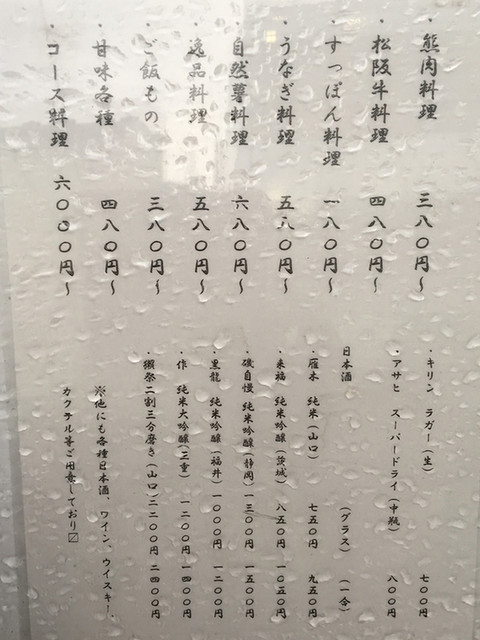 ・熊肉料理 三八〇円～
・松阪牛料理 四八〇円～
・すっぽん料理 一八〇円～
・うなぎ料理 五八〇円～
・自然薯料理 六八〇円～
・逸品料理 五八〇円～
・ご飯もの 三八〇円～
・甘味各種 四八〇円～
・コース料理 六〇〇〇円～
・キリン ラガー（生） 七〇〇円
・アサヒ スーパードライ（中瓶） 八〇〇円
日本酒 （グラス） （一合）
・雁木 純米（山口） 七五〇円 九五〇円
・来福 純米吟醸（茨城） 八五〇円 一〇五〇円
・磯自慢 純米吟醸（静岡） 一三〇〇円 一五〇〇円
・黒龍 純米吟醸（福井） 一〇〇〇円 一二〇〇円
・作 純米大吟醸（三重） 一二〇〇円 一四〇〇円
・獺祭二割三分磨き（山口） 二二〇〇円 二四〇〇円
※他にも各種日本酒、ワイン、ウイスキー、
カクテル等ご用意しており〼